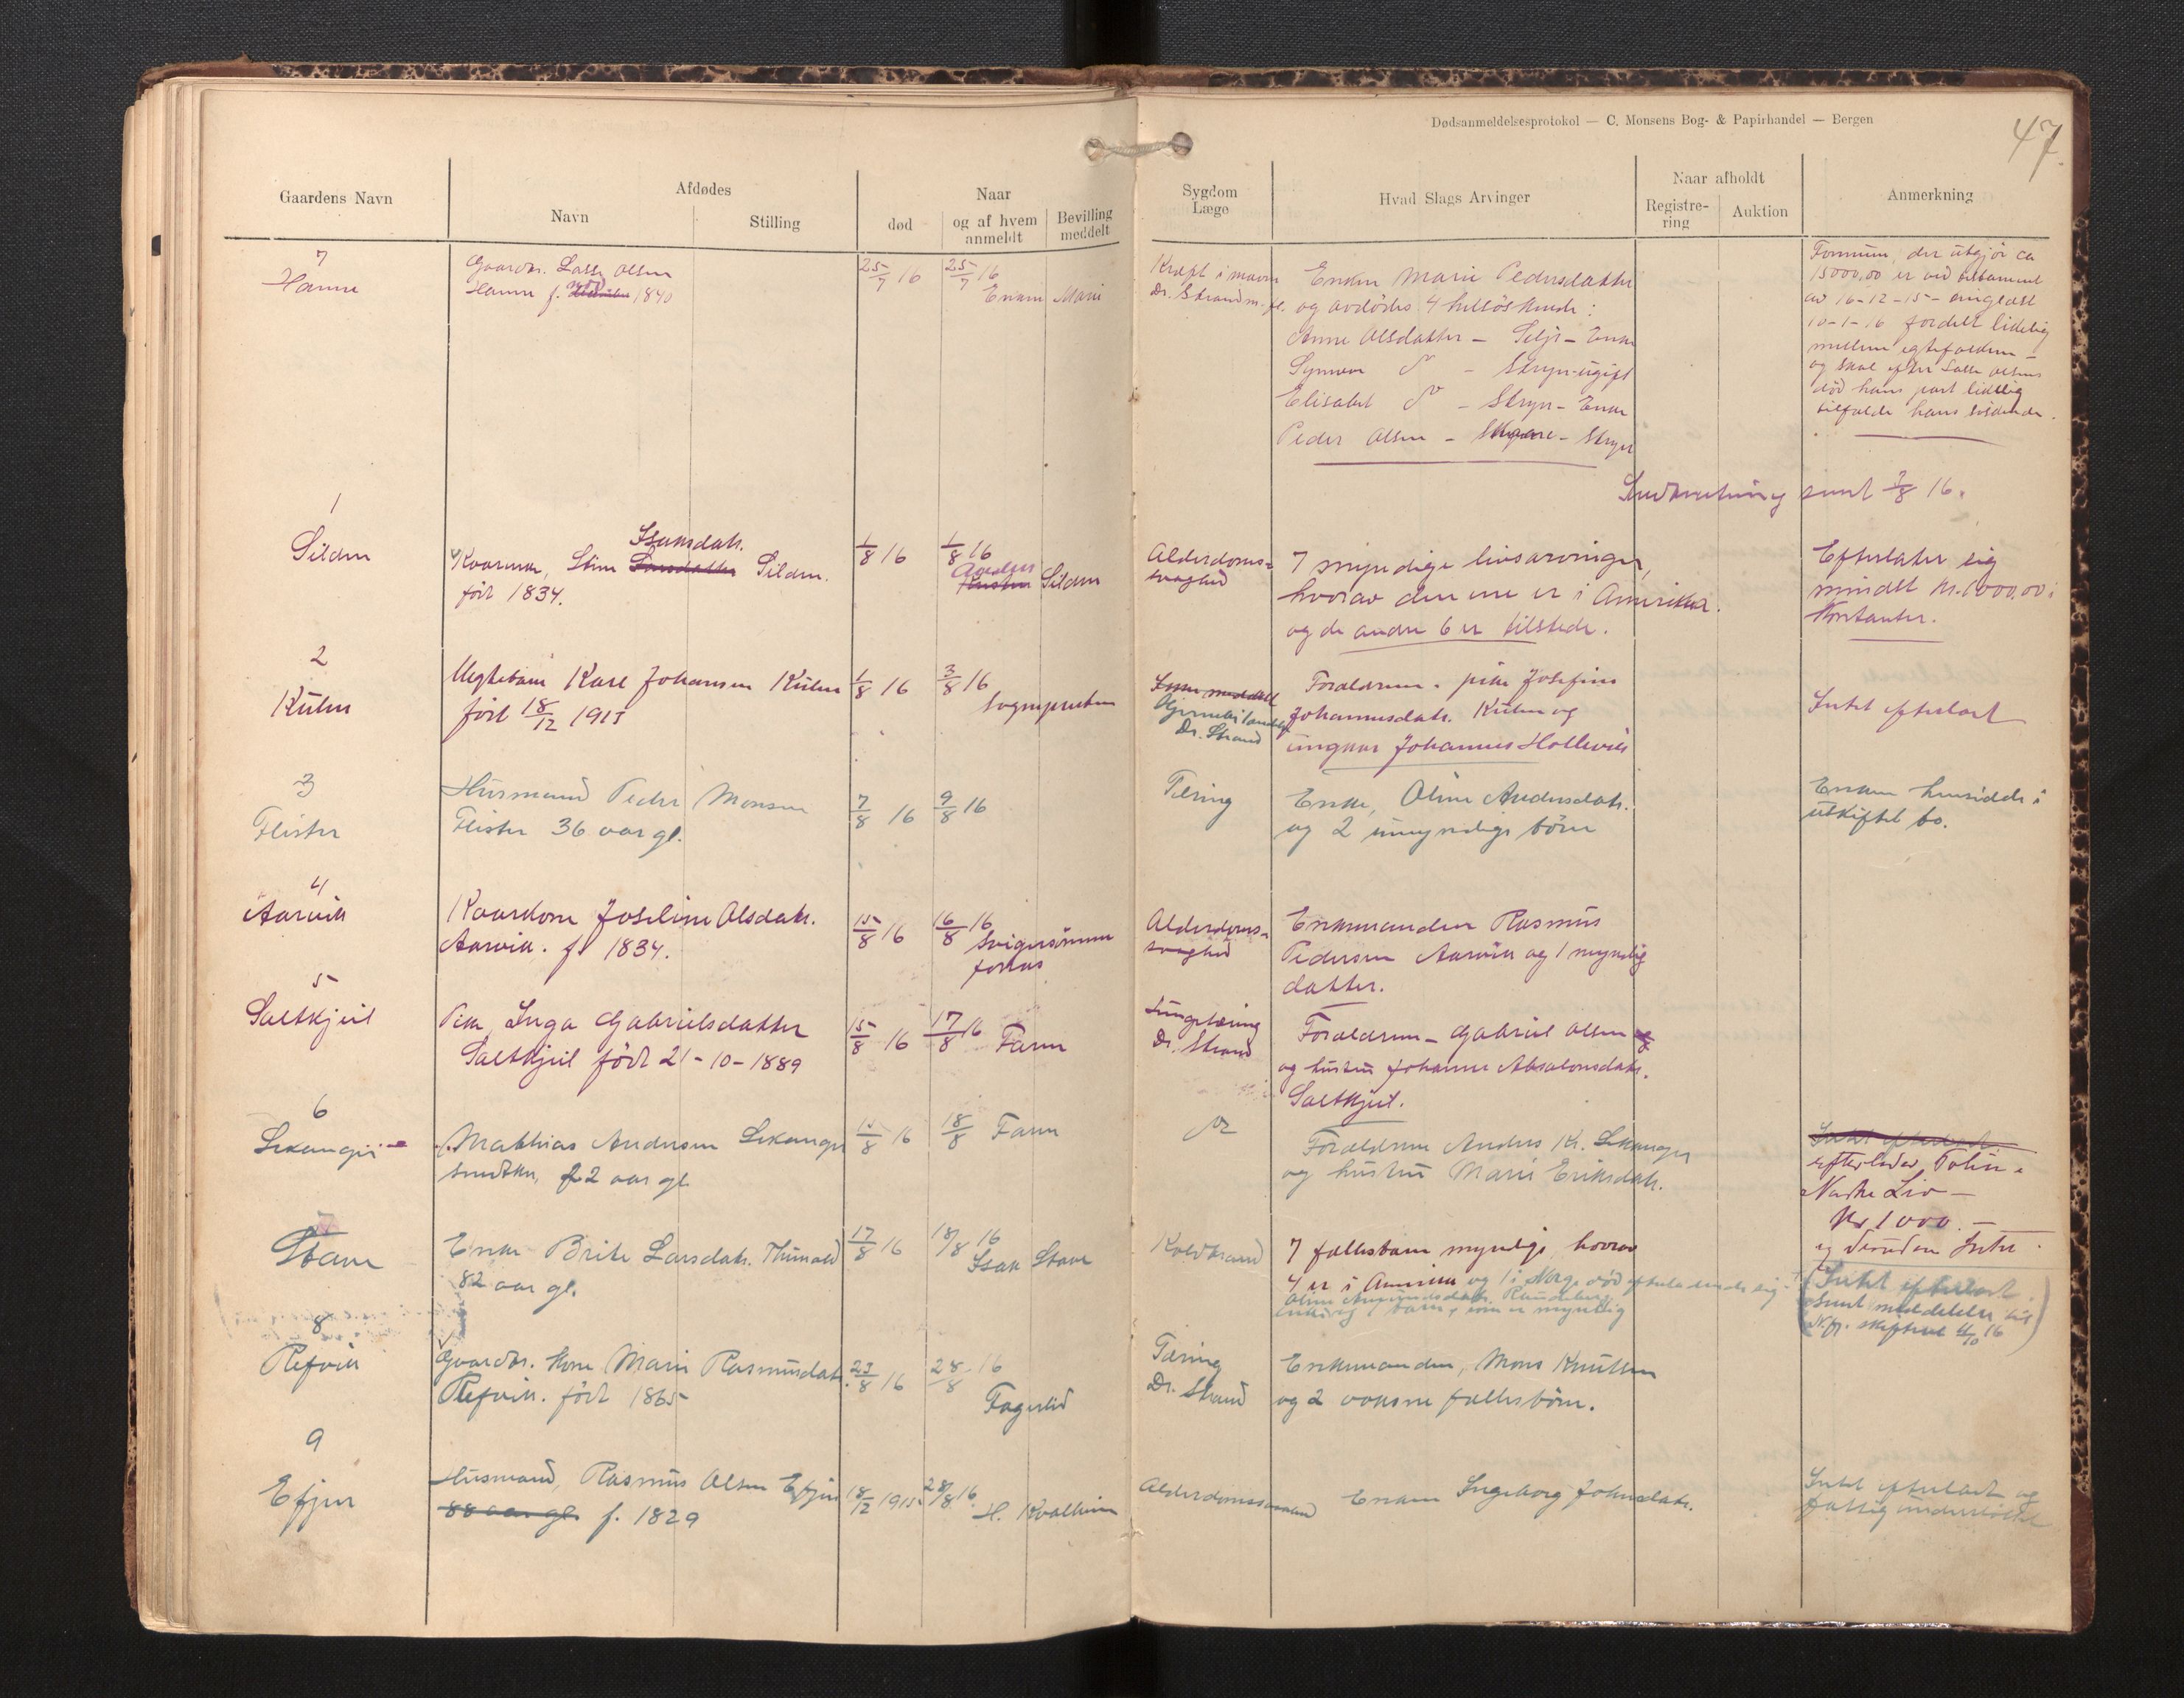 Dødsanmeldelsesprotokol — C. Monsens Bog- & Papirhandel — Bergen
47.
Gaardens Navn
Afdødes
Navn
Stilling
Naar
død
og af hvem anmeldt
Bevilling meddelt
Sygdom
Læge
Hvad Slags Arvinger
Naar afholdt
Registre-
ring
Auktion
Anmerkning
7
Hamre
Gaardbr. Lasse Olsen
Hamre f. 1840
25/7 16
25/7 16
Enken Marie
Kræft i maven
Dr. Strand
Enken Marie Pedersdatter
og avdødes 4 helsøskende:
Anne Olsdatter - Selje - Enke
Synneve do - Stryn - ugift
Elisabet do - Stryn - Enke
Peder Olsen - Skaare - Stryn
Formuen, der utgjør ca
15000,00 er ved testament
av 16-12-15 - tinglæst
10-1-16 fordelt likelig
mellem egtefolkene -
og skal efter Lasse Olsens
død hans part likelig
tilfalde hans søskende.
Indberetning sendt 7/8 16.
1
Silden
Isaksdatr.
Kaarenke, Stine Larsdatter Silden.
født 1834.
1/8 16
1/8 16
Silden
Alderdoms-
svaghed
7 myndige livsarvinger,
hvorav den ene er i Amerika.
og de andre 6 er tilstede.
Efterlater sig
mindst kr. 1000,00 i
Kontanter.
2
Kulen
Uegtebarn Karl Johansen Kulen
født 18/12 1915
1/8 16
3/8 16
Sognepresten
Dr. Strand
Forældrene. pike Josefine
Johannesdatr. Kulen og
ungkar Johannes Hollevik
Intet efterlatt
3
Flister
Husmand Peder Monsen
Flister 36 aar gl.
7/8 16
9/8 16
Tæring
Enke, Oline Andersdatr.
og 2 umyndige børn
Enken hensidder i
uskiftet bo.
4
Aarvik
Kaarkone Joseline Olsdatr.
Aarvik. f. 1834.
15/8 16
16/8 16
Svigersønnen
Alderdoms-
svaghed
Enkemanden Rasmus
Pedersen Aarvik og 1 myndig
datter.
5
Saltkjeil
Pike Inga Gabrielsdatter
Saltkjeil født 21-10-1889
15/8 16
17/8 16
Faren
Lungetæring
Dr. Strand
Forældrene - Gabriel Olsen og
og hustru Johanne Absalonsdatr.
Saltkjeil.
6
Lekanger
Mathias Andersen Lekanger
12 aar gl.
15/8 16
18/8
Faren
do
Forældrene Anders Kr. Lekanger
og hustru Marie Eriksdatr.
Intet efterlatt
efterlader Polise
Norske Liv -
Kr 1000. -
og desuden Intet.
7
Stave
Enke Brite Larsdatr.
82 aar gl.
17/8 16
18/8 16
Isak Stave
Koldbrand
7 fællesbarn myndige, hvorav
4 er i Amerika og 1 i Norge død efterladende sig
barn, som er myndig
(Intet efterlatt.
Sendt meddelelse til
N.fj. skifteret 4/10 16)
8
Refvik
Gaardbr. kone Marie Rasmusdatr.
Refvik. født 1865
23/8 16
28/8 16
Fagerlid
Tæring
Dr. Strand
Enkemanden, Mons Knutsen
og 2 voksne fællesbørn.
9
Efjen
Husmand, Rasmus Olsen Efjen
88 aar gl. f. 1829
18/12 1915
28/8 16.
H. Kvalheim
Enken Ingeborg Johnsdatr.
Intet efterlatt og
fattigunderstøttet